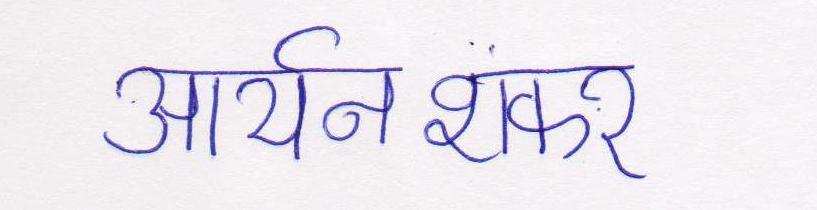 आर्यन शंकर